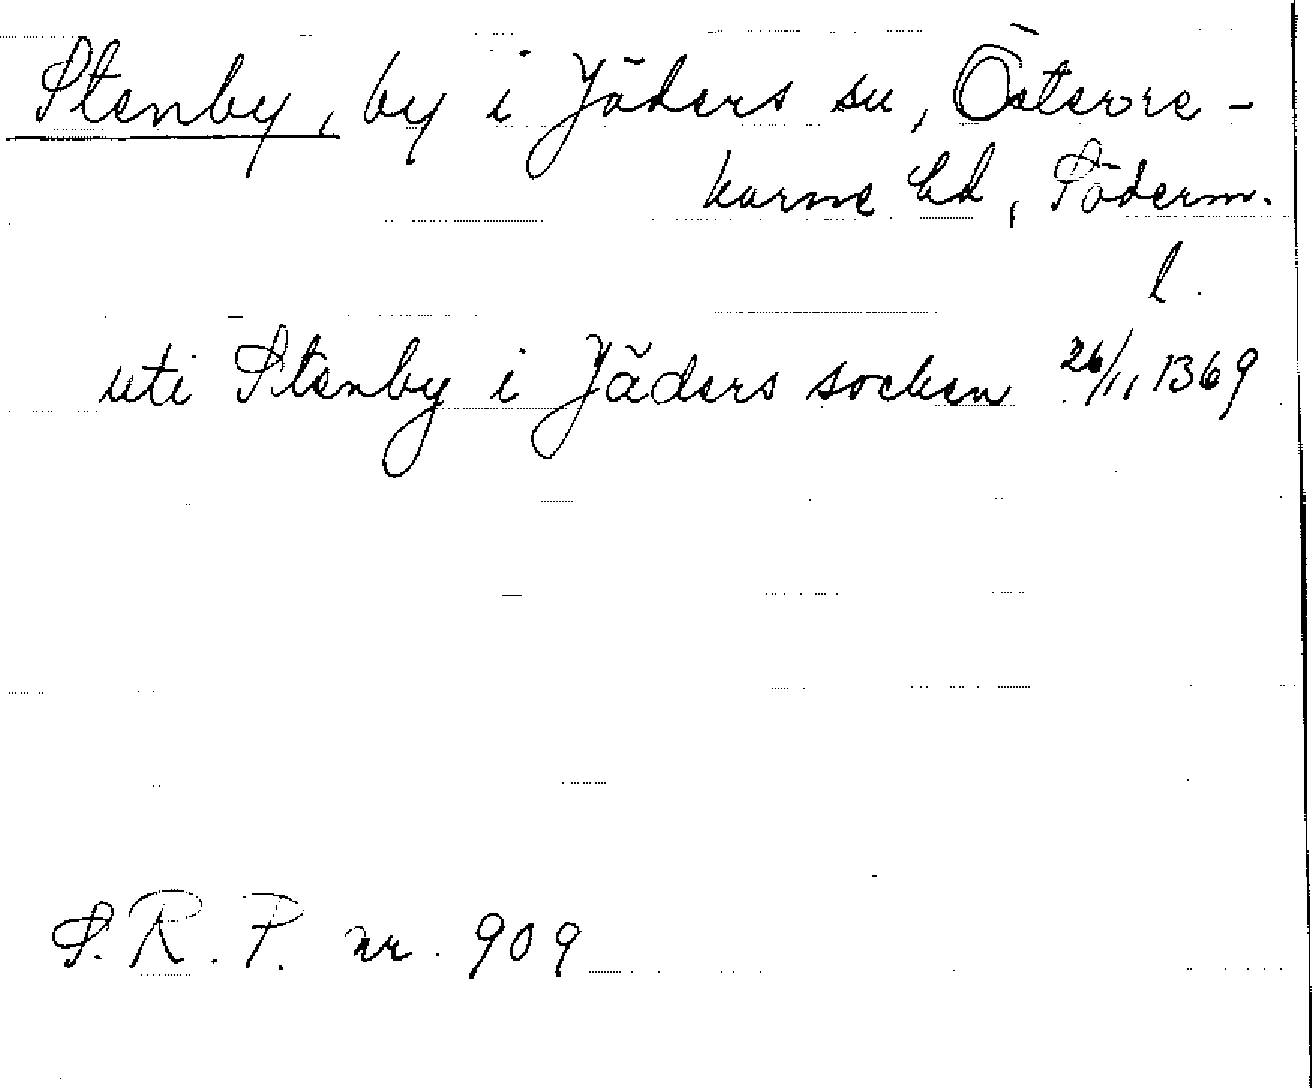 Stenby, by i Jäders sn, Österre-
karne hd, Söderm.
l.
uti Stenby i Jäders socken 26/11 1369
S.R.P. nr. 909